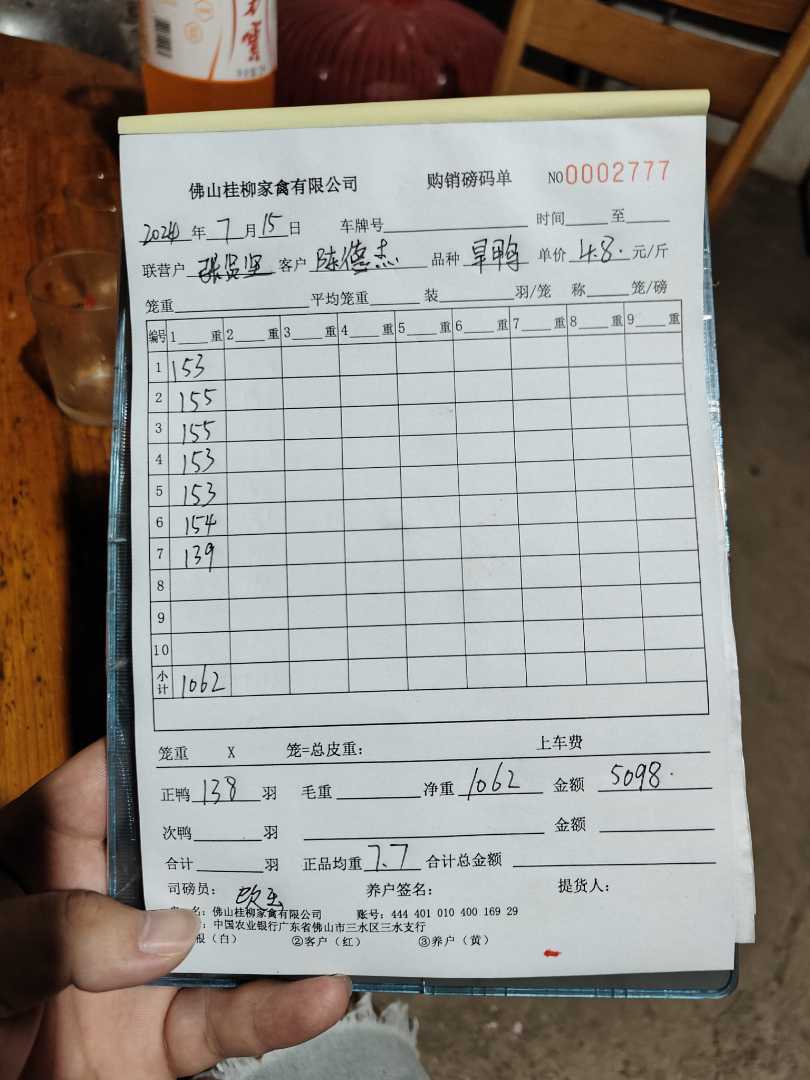 佛山桂柳家禽有限公司 购销磅码单 NO0002777
2024年7月15日 车牌号 时间 至
联营户 张贤坚 客户 陈德杰 品种 旱鸭 单价 4.8. 元/斤
笼重 平均笼重 装 羽/笼 称 笼/磅
编号 1 重 2 重 3 重 4 重 5 重 6 重 7 重 8 重 9 重
1 153
2 155
3 155
4 153
5 153
6 154
7 139
8
9
10
小计 1062
笼重 X 笼=总皮重: 上车费
正鸭 138 羽 毛重 净重 1062 金额 5098.
次鸭 羽 金额
合计 羽 正品均重 7.7 合计总金额
司磅员: 养户签名: 提货人:
名: 佛山桂柳家禽有限公司 账号: 444 401 010 400 169 29
: 中国农业银行广东省佛山市三水区三水支行
根(白) ②客户(红) ③养户(黄)